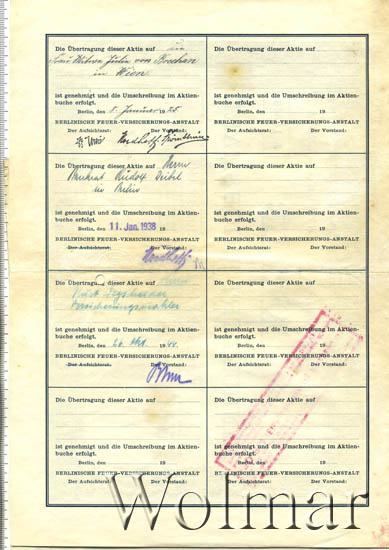 Die Übertragung dieser Aktie auf
Frau Witwe Julie von
in Wien
ist genehmigt und die Umschreibung im Aktien-
buche erfolgt.
Berlin, den 8. Januar 1925
BERLINISCHE FEUER-VERSICHERUNGS-ANSTALT
Der Aufsichtsrat: Der Vorstand:
Die Übertragung dieser Aktie auf Herrn
Rudolf
in Berlin
ist genehmigt und die Umschreibung im Aktien-
buche erfolgt.
Berlin, den 11. Jan. 1938 19
BERLINISCHE FEUER-VERSICHERUNGS-ANSTALT
Der Aufsichtsrat: Der Vorstand:
Die Übertragung dieser Aktie auf Herrn
Kurt
ist genehmigt und die Umschreibung im Aktien-
buche erfolgt.
Berlin, den 26. Okt. 1944
BERLINISCHE FEUER-VERSICHERUNGS-ANSTALT
Der Aufsichtsrat: Der Vorstand:
Die Übertragung dieser Aktie auf
ist genehmigt und die Umschreibung im Aktien-
buche erfolgt.
Berlin, den 19
BERLINISCHE FEUER-VERSICHERUNGS-ANSTALT
Der Aufsichtsrat: Der Vorstand:
Die Übertragung dieser Aktie auf
ist genehmigt und die Umschreibung im Aktien-
buche erfolgt.
Berlin, den 19
BERLINISCHE FEUER-VERSICHERUNGS-ANSTALT
Der Aufsichtsrat: Der Vorstand:
Die Übertragung dieser Aktie auf
ist genehmigt und die Umschreibung im Aktien-
buche erfolgt.
Berlin, den 19
BERLINISCHE FEUER-VERSICHERUNGS-ANSTALT
Der Aufsichtsrat: Der Vorstand:
Die Übertragung dieser Aktie auf
ist genehmigt und die Umschreibung im Aktien-
buche erfolgt.
Berlin, den 19
BERLINISCHE FEUER-VERSICHERUNGS-ANSTALT
Der Aufsichtsrat: Der Vorstand:
Die Übertragung dieser Aktie auf
ist genehmigt und die Umschreibung im Aktien-
buche erfolgt.
Berlin, den 19
BERLINISCHE FEUER-VERSICHERUNGS-ANSTALT
Der Aufsichtsrat: Der Vorstand:
Wolmar